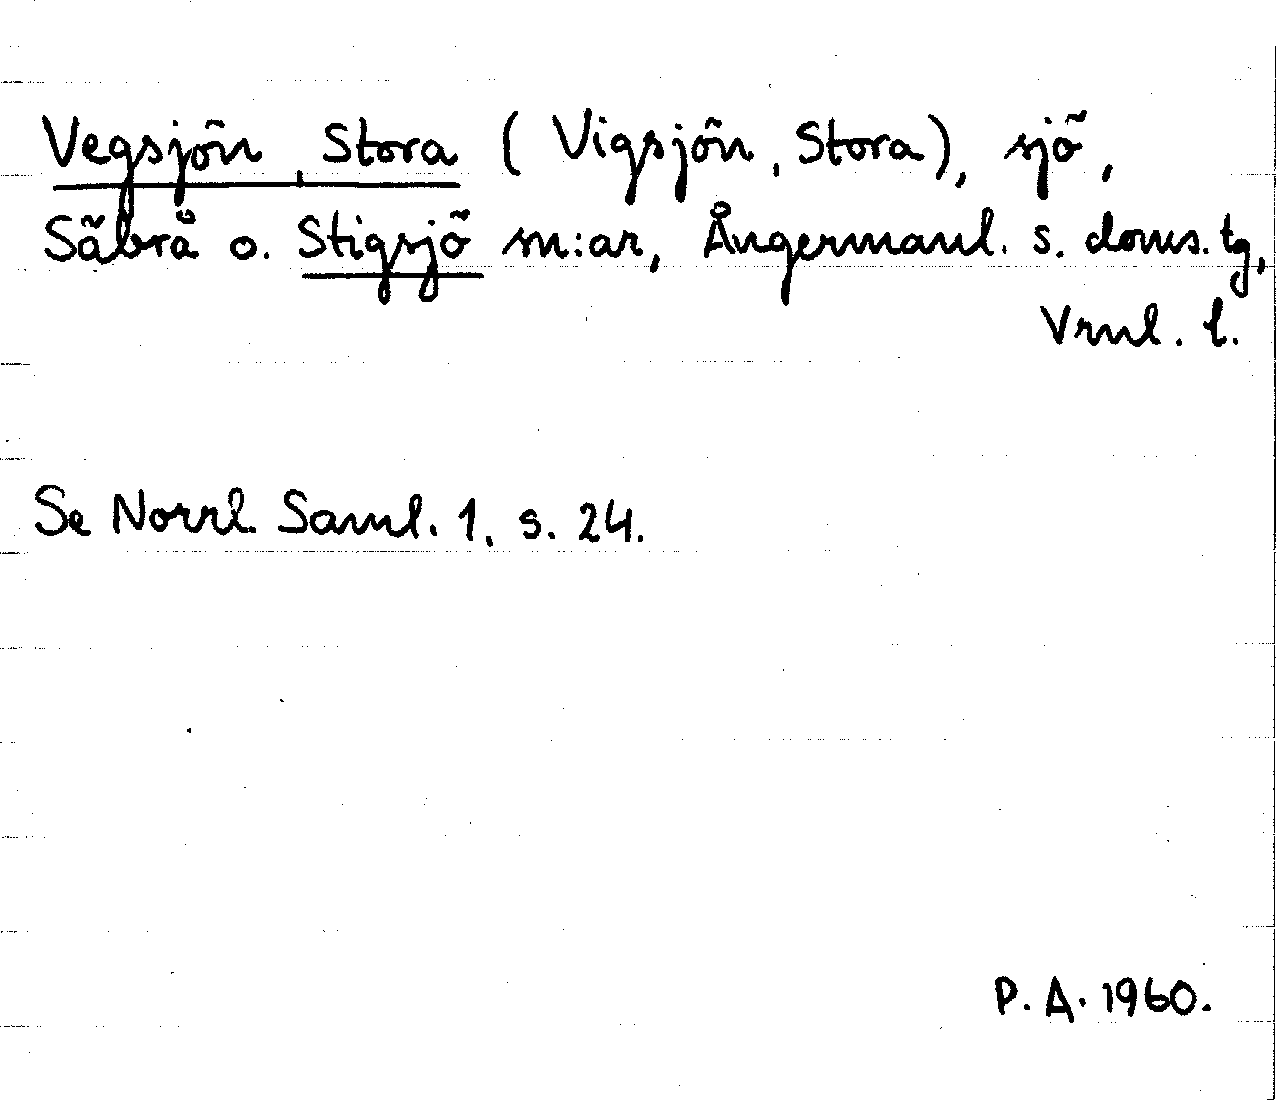 Vegsjön, Stora (Vigsjön, Stora), sjö,
Säbrå o. Stigsjö sn:ar, Ångermanl. s. doms. tg,
Vrnl. l.
Se Norrl. Saml. 1, s. 24.
P. A. 1960.